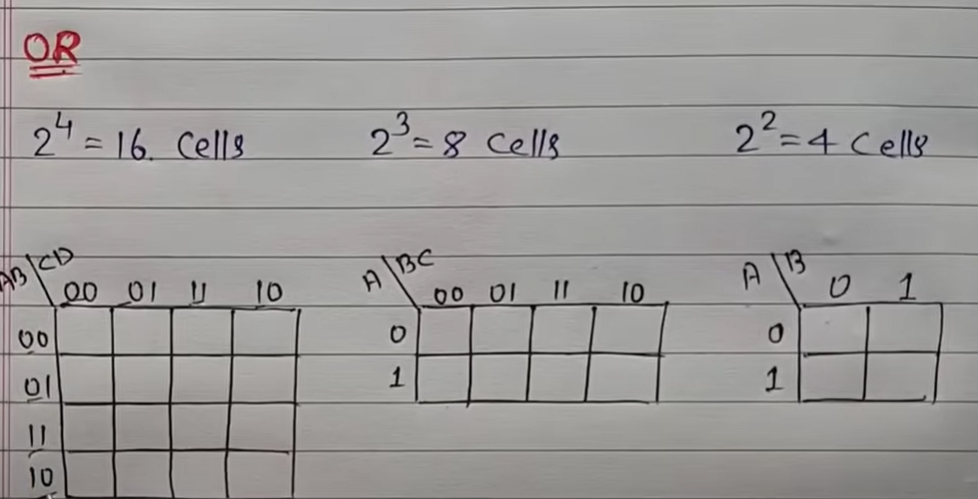 OR
2^4 = 16. Cells 2^3 = 8 Cells 2^2 = 4 Cells
AB\CD 00 01 11 10 A\BC 00 01 11 10 A\B 0 1
00 0 0
01 1 1
11
10